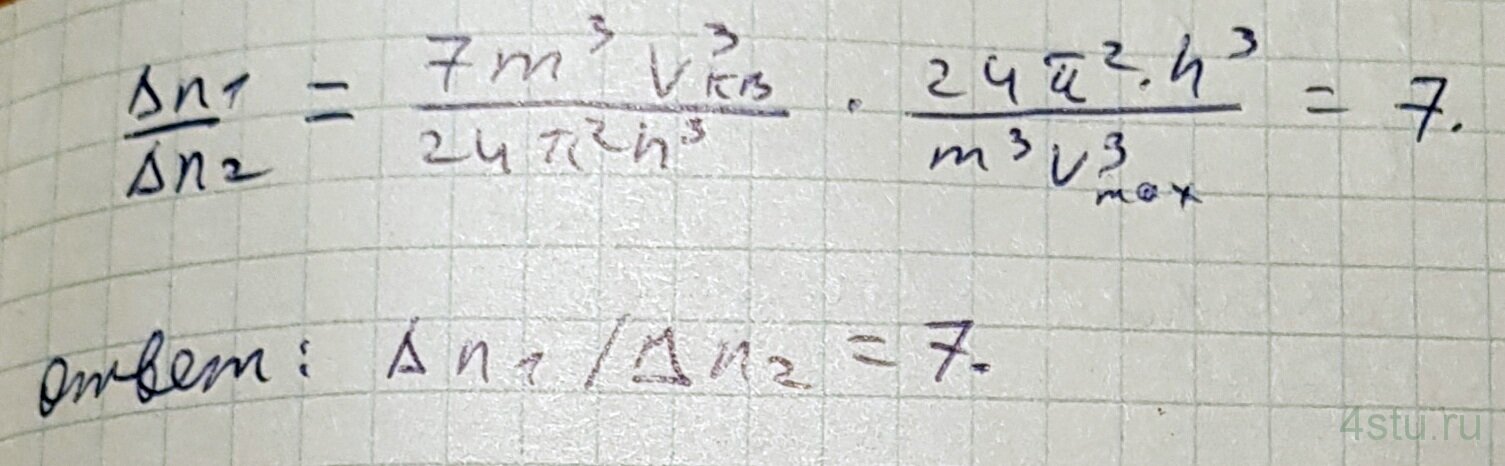 Δn1/Δn2 = 7m³ v³кв / 24π²ħ³ · 24π²·ħ³ / m³v³max = 7.
ответ: Δn1/Δn2 = 7.
4stu.ru